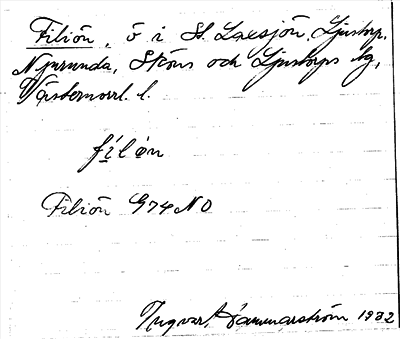 Filiön, ö i St. Laxsjön, Ljustorp,
Njurunda, Sköns och Ljustorps tg,
Västernorrl. l.
fìlön
Filiön G74 NO
Ingvar Hammarström 1932